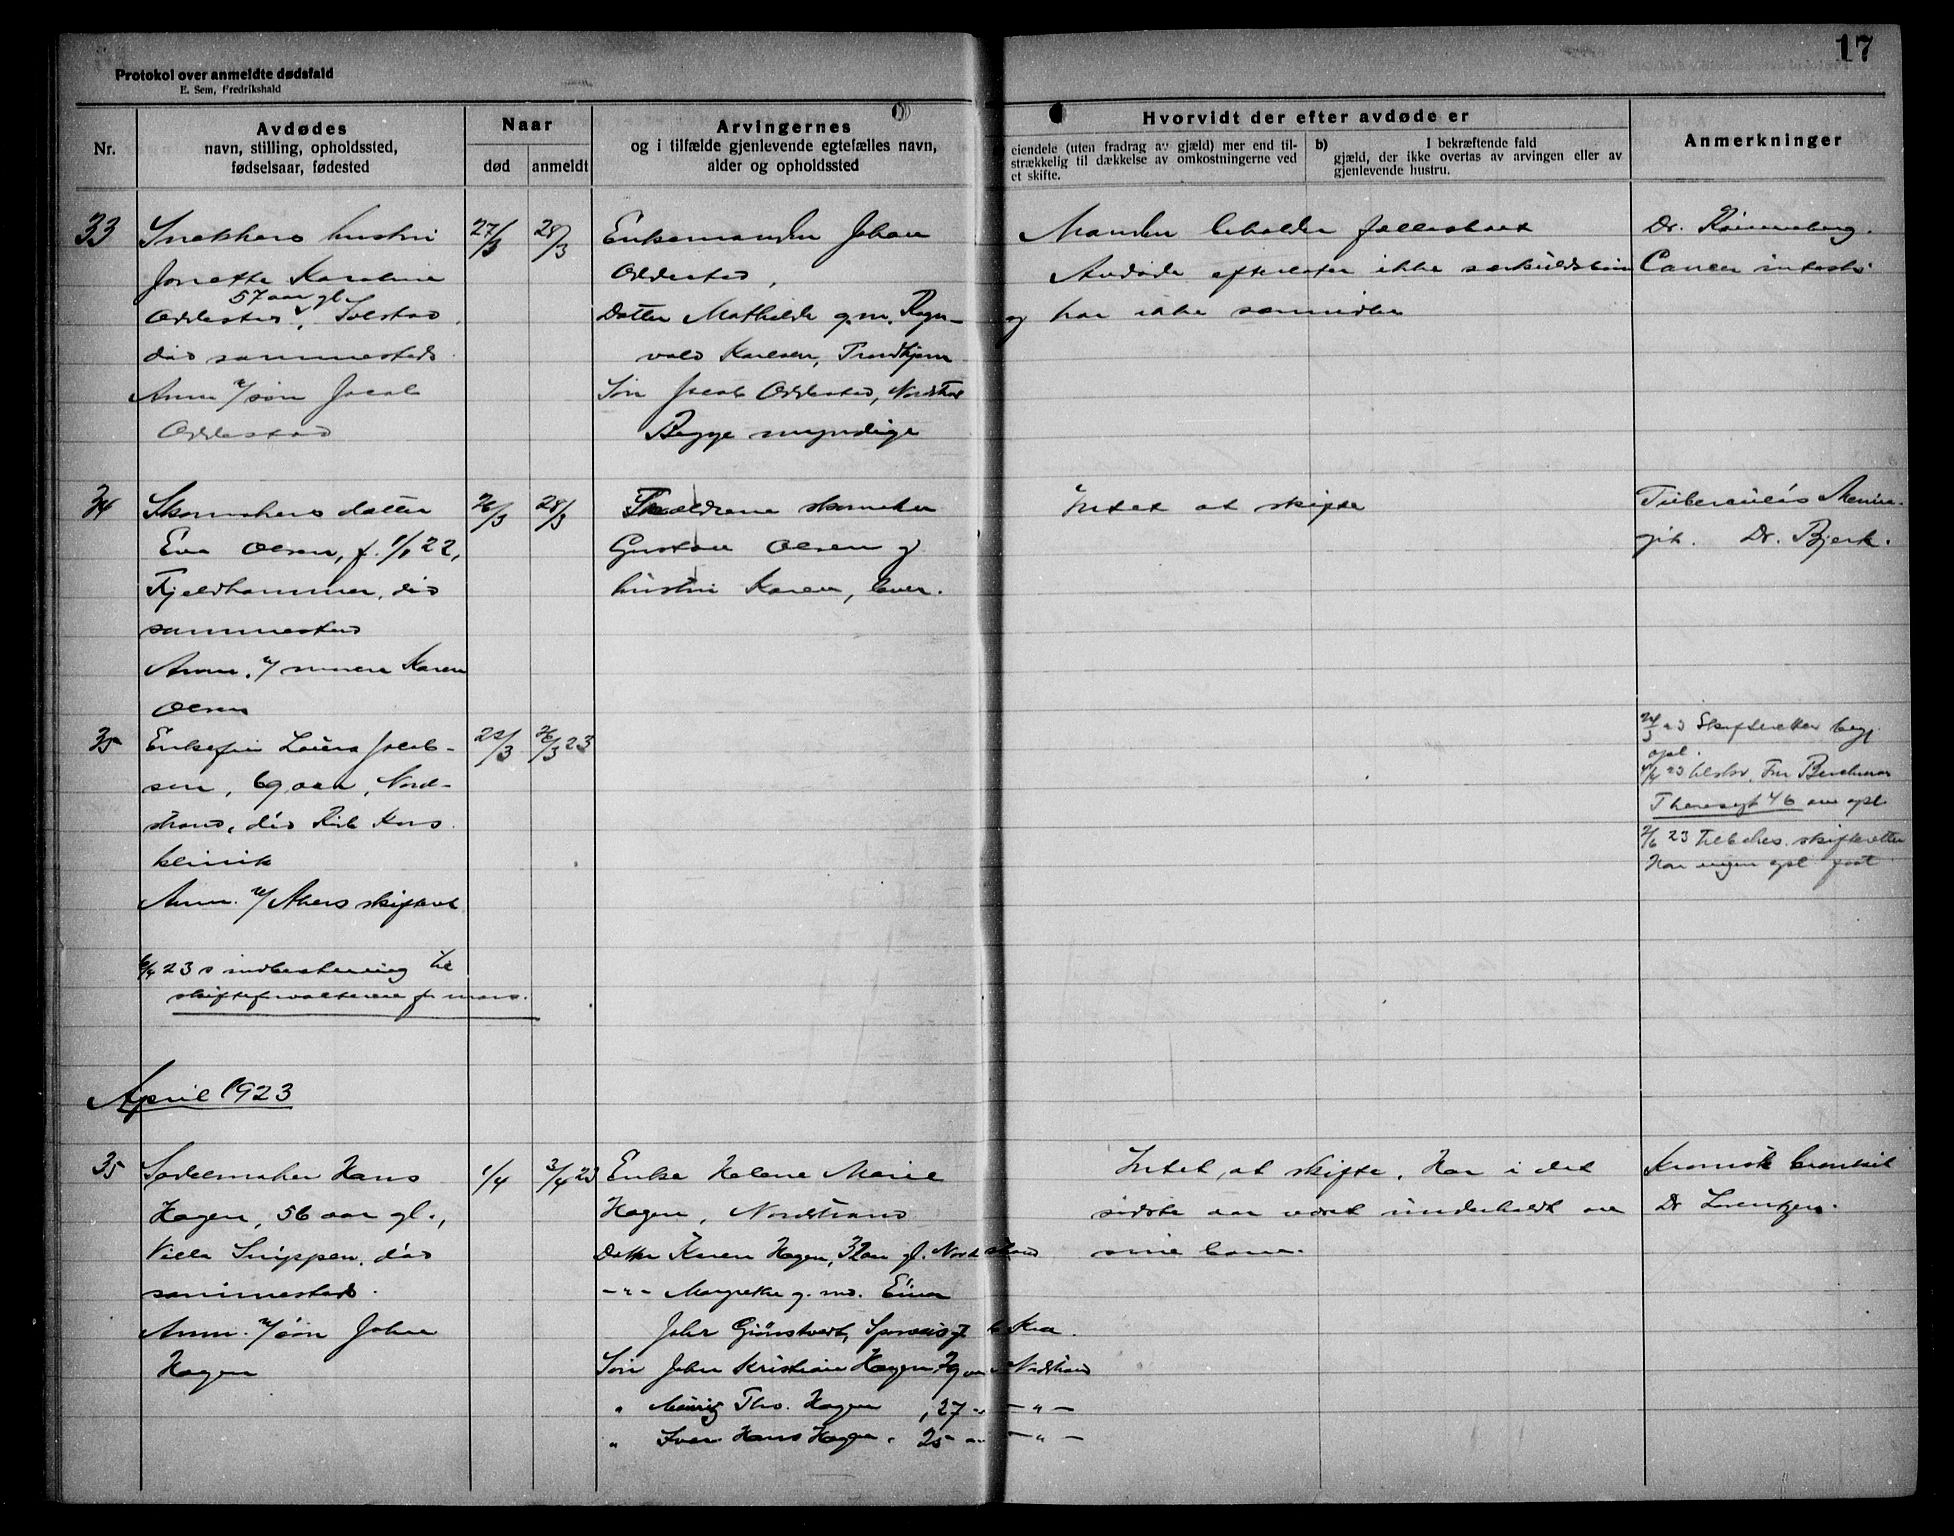 17
Protokol over anmeldte dødsfald
E. Sem, Fredrikshald
Nr.
Avdødes
navn, stilling, opholdssted,
fødselsaar, fødested
Naar
død
anmeldt
Arvingernes
og i tilfælde gjenlevende egtefælles navn,
alder og opholdssted
Hvorvidt der efter avdøde er
eiendele (uten fradrag av gjæld) mer end til-
strækkelig til dækkelse av omkostningerne ved
et skifte.
b) I bekræftende fald
gjæld, der ikke overtas av arvingen eller av
gjenlevende hustru.
Anmerkninger
33
Snekkers hustru
Jonette Karoline
57 aar gl.
Oddestad, Solstad,
død sammesteds.
Anm. v/ søn Jacob
Oddestad
27/3
28/3
Enkemanden Johan
Oddestad,
Datter Mathilde g.m. Ragn-
vald Karlsen, Trondhjem
Søn Jacob Oddestad, Nordstrand
Begge myndige
Manden beholder fællesboet
Avdøde efterlater ikke særkuldsbarn
og har ikke særmidler
Dr. Rønneberg.
Cancer intesti
34
Skomakers datter
Eva Olsen, f. 1/1 22,
Fjeldhammer, død
sammesteds
Anm. v/ moren Karen
Olsen
26/3
28/3
Forældrene skomaker
Gustav Olsen og
hustru Karen, lever.
Intet at skifte
Tuberculøs Menin-
git. Dr. Bjerk.
35
Enkefru Laura Jacob-
sen, 69 aar, Nord-
strand, død Røde Kors
klinik
Anm. v/ Akers skifteret
22/3
26/3 23
24/3 23 Skifteretten beg.
opl.
4/4 23 tilskr. Fru
Theresegt 46 om opl.
2/6 23 Tilb. skifteretten
Har ingen opl. faat
6/4 23 s indberetning til
skifteforvalteren for mars.
April 1923
35
Sadelmaker Hans
Hagen, 56 aar gl.,
Villa Snippen, død
sammesteds.
Anm. v/ søn John
Hagen
1/4
3/4 23
Enke Helene Marie
Hagen, Nordstrand
Datter Karen Hagen, 32 aar gl. Nordstrand
— " — Margrethe g. m. Einar
Kra.
Søn John Kristian Hagen, 29 aar Nordstrand
" Thv. Hagen, 27 " — " —
" Iver Hans Hagen, 25 " — " —
Intet at skifte. Har i det
sidste aar været underholdt av
sine barn.
Kronisk bronkit
Dr Lorentzen.